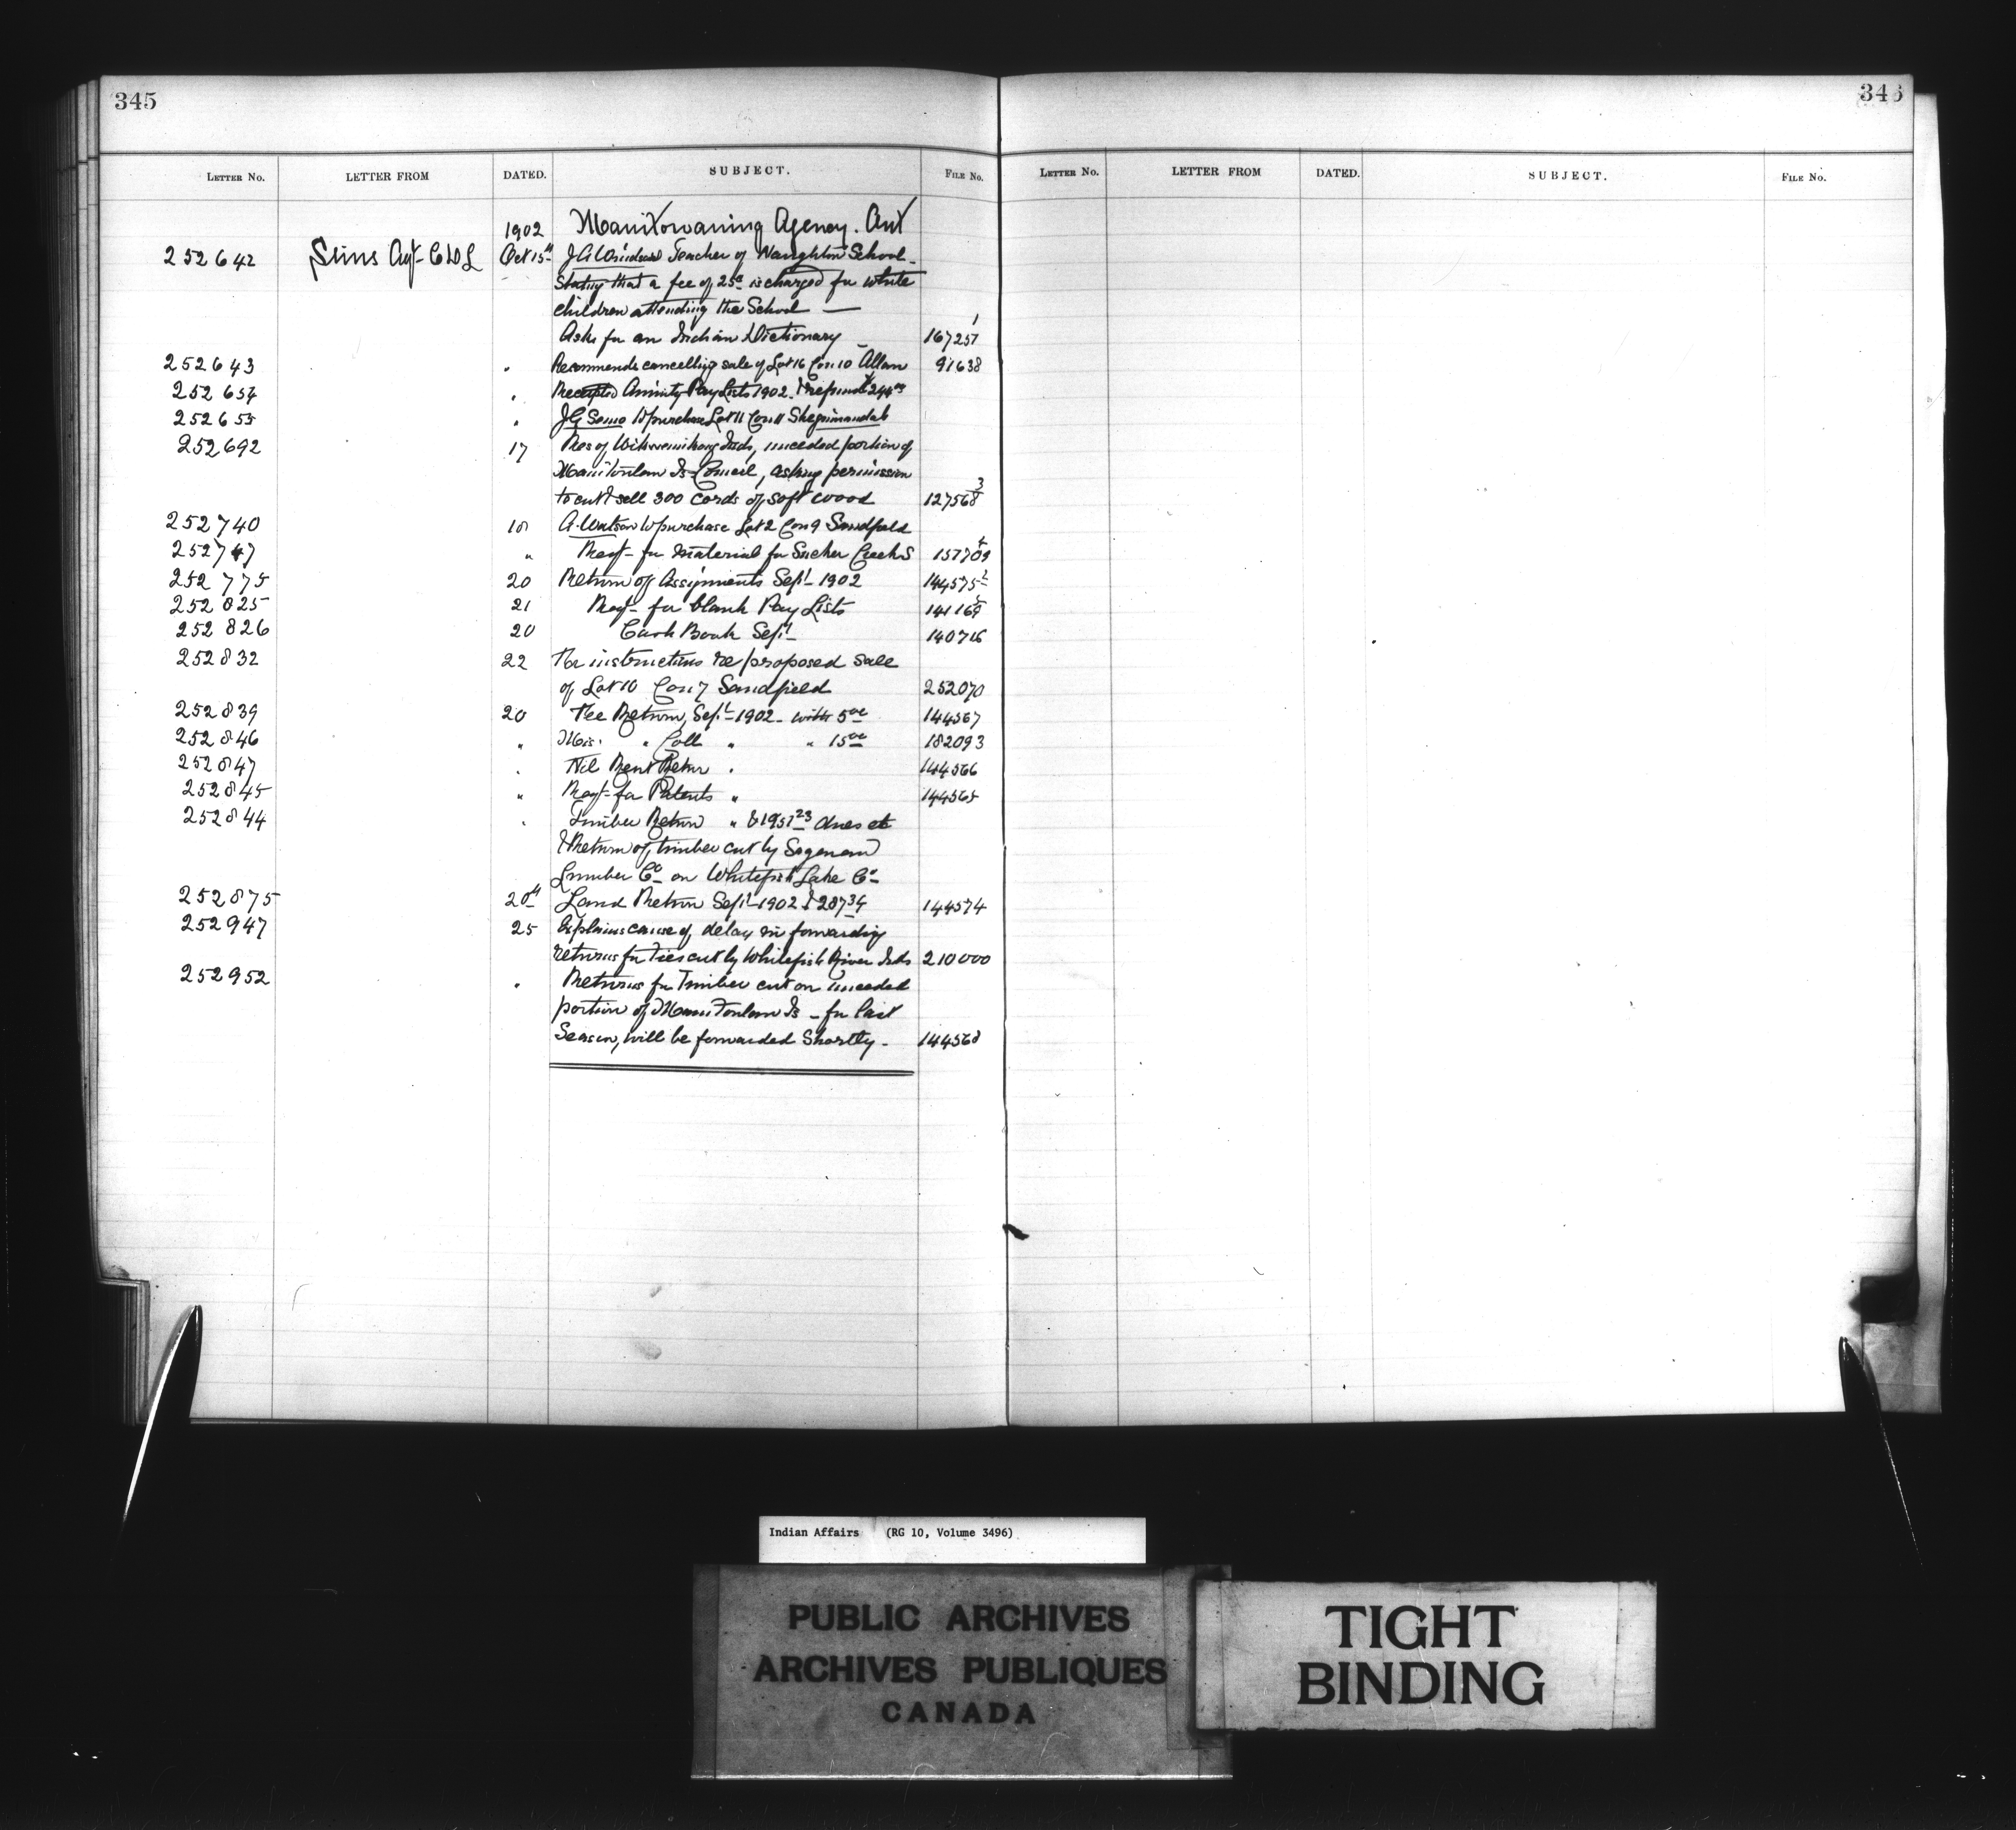 345
346
LETTER No. LETTER FROM DATED. SUBJECT. FILE No. LETTER No. LETTER FROM DATED. SUBJECT. FILE No.
1902 Manitowaning Agency. Ont
252642 Sims Agt C L Oct 15th J A Teacher of Naughton School
Stating that a fee of 25c is charged for white
children attending the School —
Asks for an Indian Dictionary 167251 1
252643 " Recommends cancelling sale of Lot 16 Con 10 Allan 91638
252654 " Receipted Annuity Pay Lists 1902 & refund
252655 " J G to purchase Lot 11 Con 11 Sheguiandah
252692 17 Res of Wikwemikong Inds, unceded portion of
Manitoulin Is Council, asking permission
to cut & sell 300 cords of soft wood 127568 3
252740 18 A. Watson to purchase Lot 2 Con 9 Sandfield
252747 " Reqt for Material for Sucker Creek S 157709
252775 20 Return of Assignments Sept 1902 144575 2
252825 21 Reqt for blank Pay Lists
252826 20 Cash Book Sept 140716
252832 22 For instructions re proposed sale
of Lot 10 Con 7 Sandfield 252070
252839 20 Fee Return, Sept 1902 with 5 00 144567
252846 " Mis. " Coll " " 15 00 182093
252847 " Nil Rent Return " 144566
252845 " Reqt for Patents " 144565
252844 " Timber Return " & 1951 23 dues etc
& Return of timber cut by Sagenaw
Lumber Co on Whitefish Lake
252875 20th Land Return Sept 1902 & 287 34 144574
252947 25 Explains cause of delay in forwarding
returns for Ties cut by Whitefish River Inds 210000
252952 " Returns for Timber cut on unceded
portion of Manitoulin Is - for last
Season, will be forwarded Shortly - 144568
Indian Affairs (RG 10, Volume 3496)
PUBLIC ARCHIVES
ARCHIVES PUBLIQUES
CANADA
TIGHT
BINDING